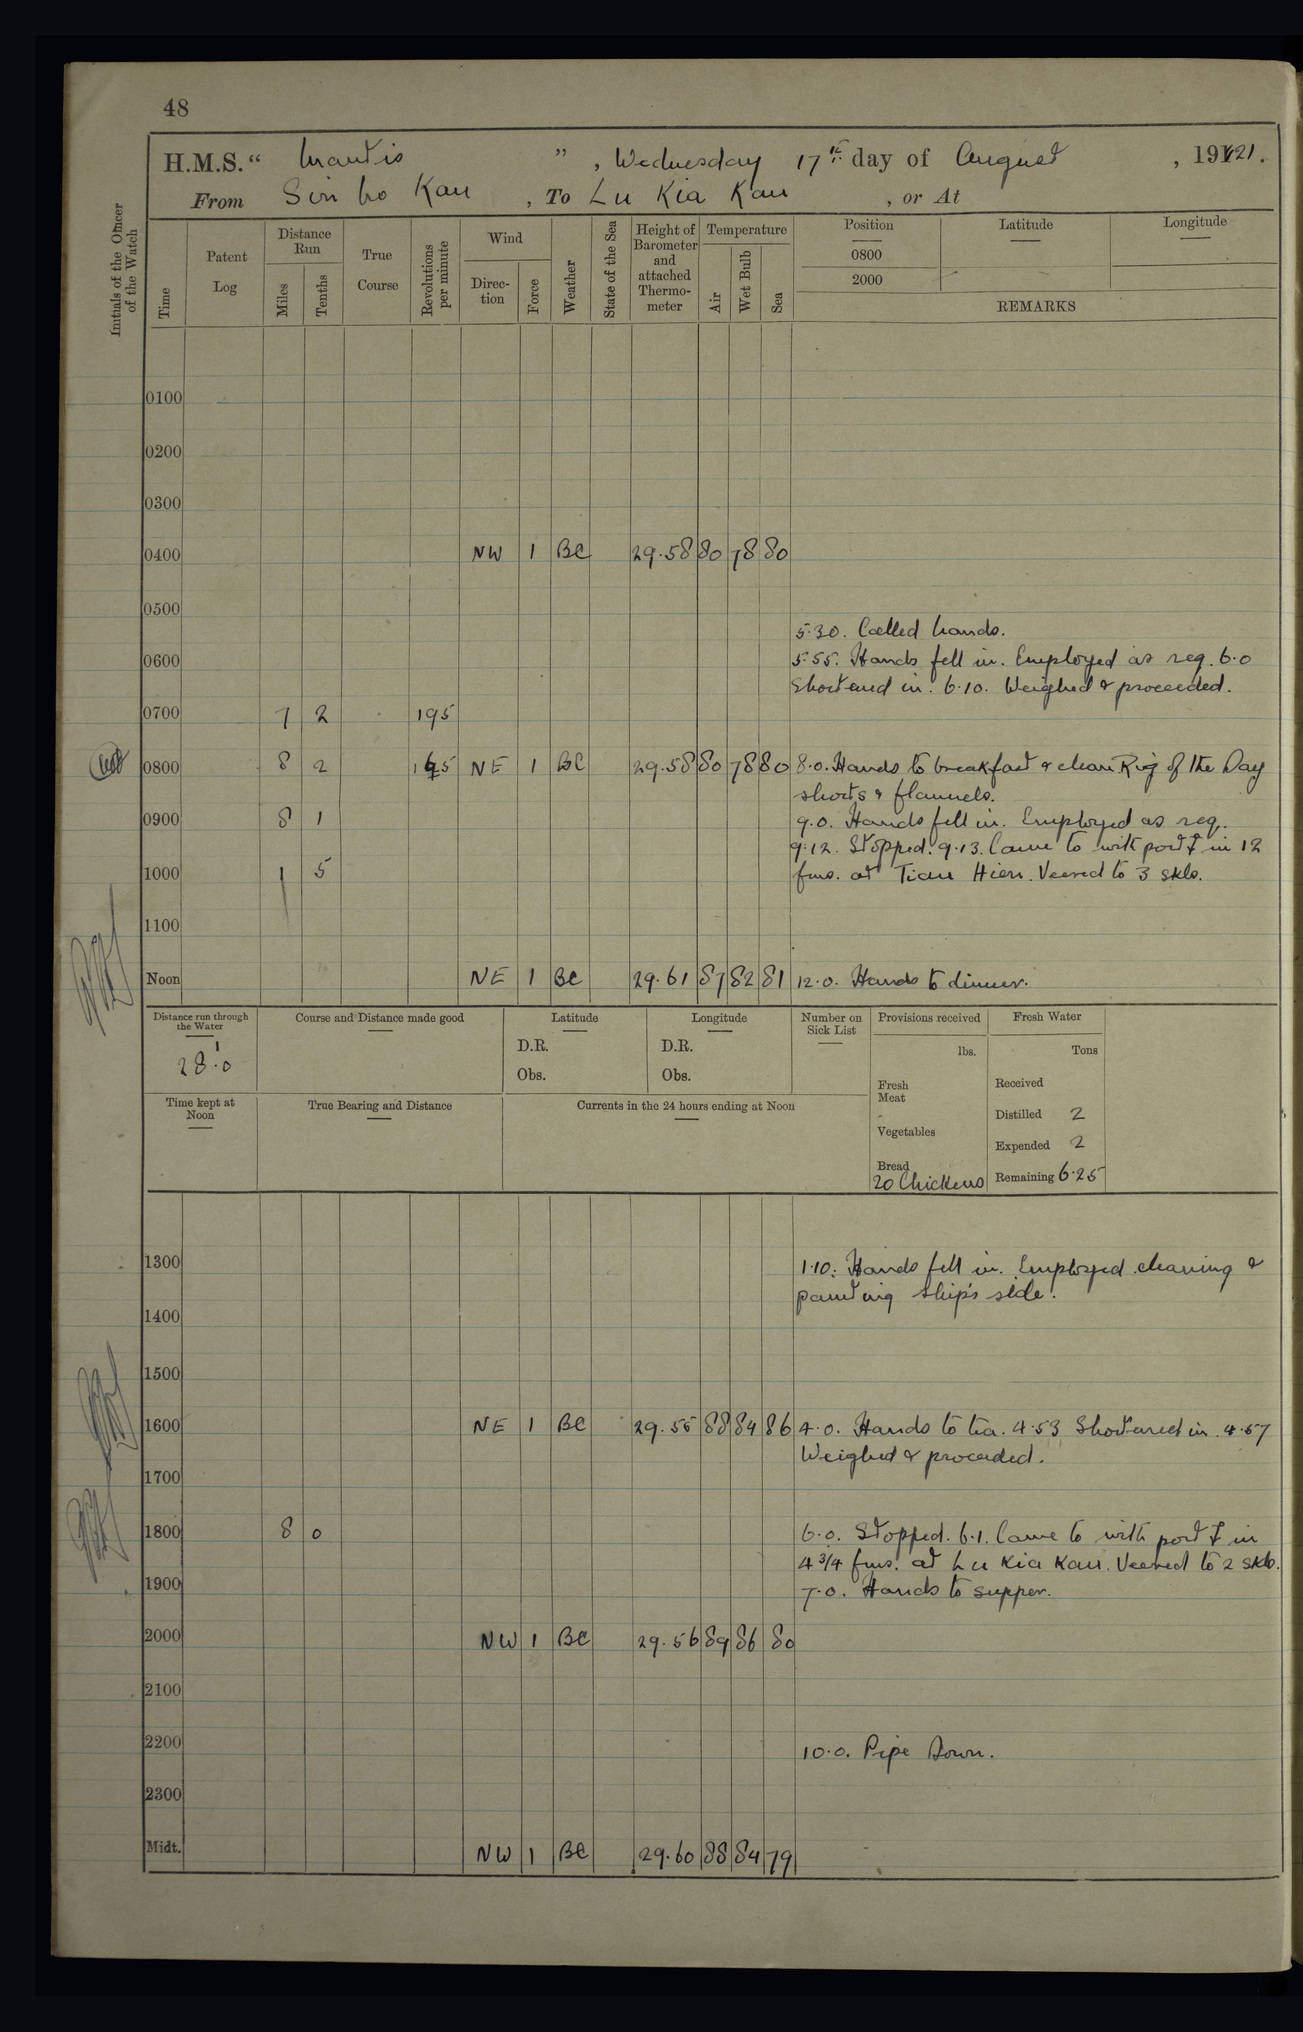 48
H.M.S. “ Mantis ” , Wednesday 17th day of August , 1921.
From Sin Ho Kau , To Lu Kia Kau , or At
Initials of the Officer of the Watch
Time
Patent Log
Distance Run
Miles
Tenths
True Course
Revolutions per minute
Wind
Direction
Force
Weather
State of the Sea
Height of Barometer and attached Thermometer
Temperature
Air
Wet Bulb
Sea
Position
0800
2000
Latitude
Longitude
REMARKS
0100
0200
0300
0400 NW 1 BC 29.58 80 78 80
0500
5.30. Called hands.
0600 5.55. Hands fell in. Employed as req. 6.0
Shortened in. 6.10. Weighed & proceeded.
0700 7 2 195
0800 8 2 195 NE 1 BC 29.58 80 78 80 8.0. Hands to breakfast & clean Rig of the Day
shorts & flannels.
0900 8 1 9.0. Hands fell in. Employed as req.
9.12. Stopped. 9.13. Came to with port ⚓ in 12
1000 1 5 fms. at Tian Hien. Veered to 3 skls.
1100
Noon NE 1 BC 29.61 87 82 81 12.0. Hands to dinner.
Distance run through the Water
28.0
Course and Distance made good
Latitude
D.R.
Obs.
Longitude
D.R.
Obs.
Number on Sick List
Provisions received
lbs.
Fresh Meat
Vegetables
Bread
20 Chickens
Fresh Water
Tons
Received
Distilled 2
Expended 2
Remaining 6.25
Time kept at Noon
True Bearing and Distance
Currents in the 24 hours ending at Noon
1300 1.10. Hands fell in. Employed cleaning &
painting ship's side.
1400
1500
1600 NE 1 BC 29.55 88 84 86 4.0. Hands to tea. 4.53 Shortened in. 4.57
Weighed & proceeded.
1700
1800 8 0 6.0. Stopped. 6.1. Came to with port ⚓ in
4 3/4 fms. at Lu Kia Kau. Veered to 2 skls.
1900 7.0. Hands to supper.
2000 NW 1 BC 29.56 89 86 80
2100
2200 10.0. Pipe Down.
2300
Midt. NW 1 BC 29.60 88 84 79